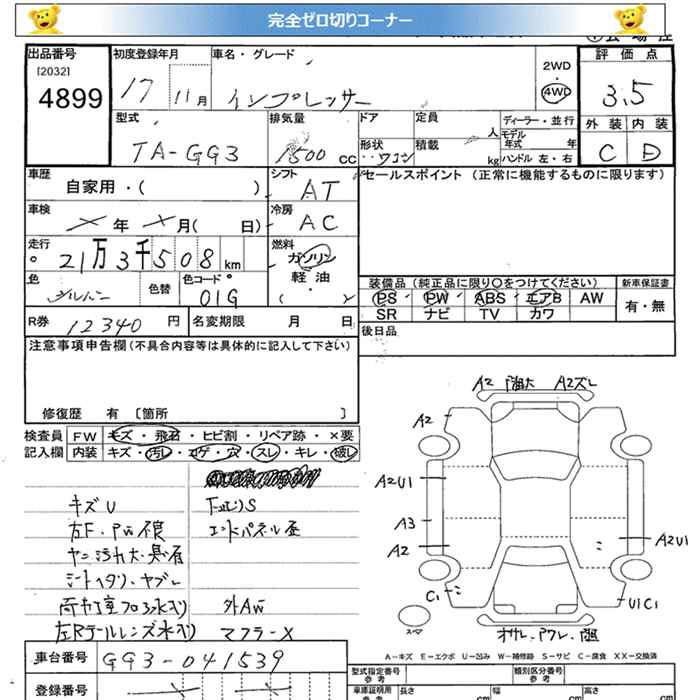 完全ゼロ切りコーナー
出品番号 初度登録年月 車名・グレード 評価点
[2032]
4899 17 11月 インプレッサー 2WD 4WD 3.5
型式 排気量 ドア 定員 人 ディーラー・並行 外装 内装
モデル年式 年
TA-GG3 1500cc 形状 ワゴン 積載 kg ハンドル 左・右 C D
車歴 自家用・( ) シフト AT セールスポイント (正常に機能するものに限ります)
車検 年 月( 日) 冷房 AC
走行 21万3千508km 燃料 ガソリン
軽油
( )
色 シルバー 色替 色コード 01G 装備品 (純正品に限り○をつけてください) 新車保証書
PS PW ABS エアB AW 有・無
SR ナビ TV カワ
R券 12340円 名変期限 月 日 後日品
注意事項申告欄(不具合内容等は具体的に記入して下さい)
修復歴 有 〔箇所 〕
検査員 FW キズ・飛石・ヒビ割・リペア跡・×要
記入欄 内装 キズ・汚レ・コゲ・穴・スレ・キレ・破レ
キズU
左F.PW不良 エンドパネル歪
ヤニ汚れ大・臭有
シートヘタリ・ヤブレ
外AW
左Rテールレンズ水入り マフラーX
A2 A2ズレ
A2
A2U1
A3
A2
A2U1
C1
U1C1
スペア
A-キズ E-エクボ U-凹み W-補修跡 S-サビ C-腐食 XX-交換済
車台番号 GG3-041539
登録番号
型式指定番号 参考 類別区分番号 参考
車庫証明用 参考 長さ cm 幅 cm 高さ cm